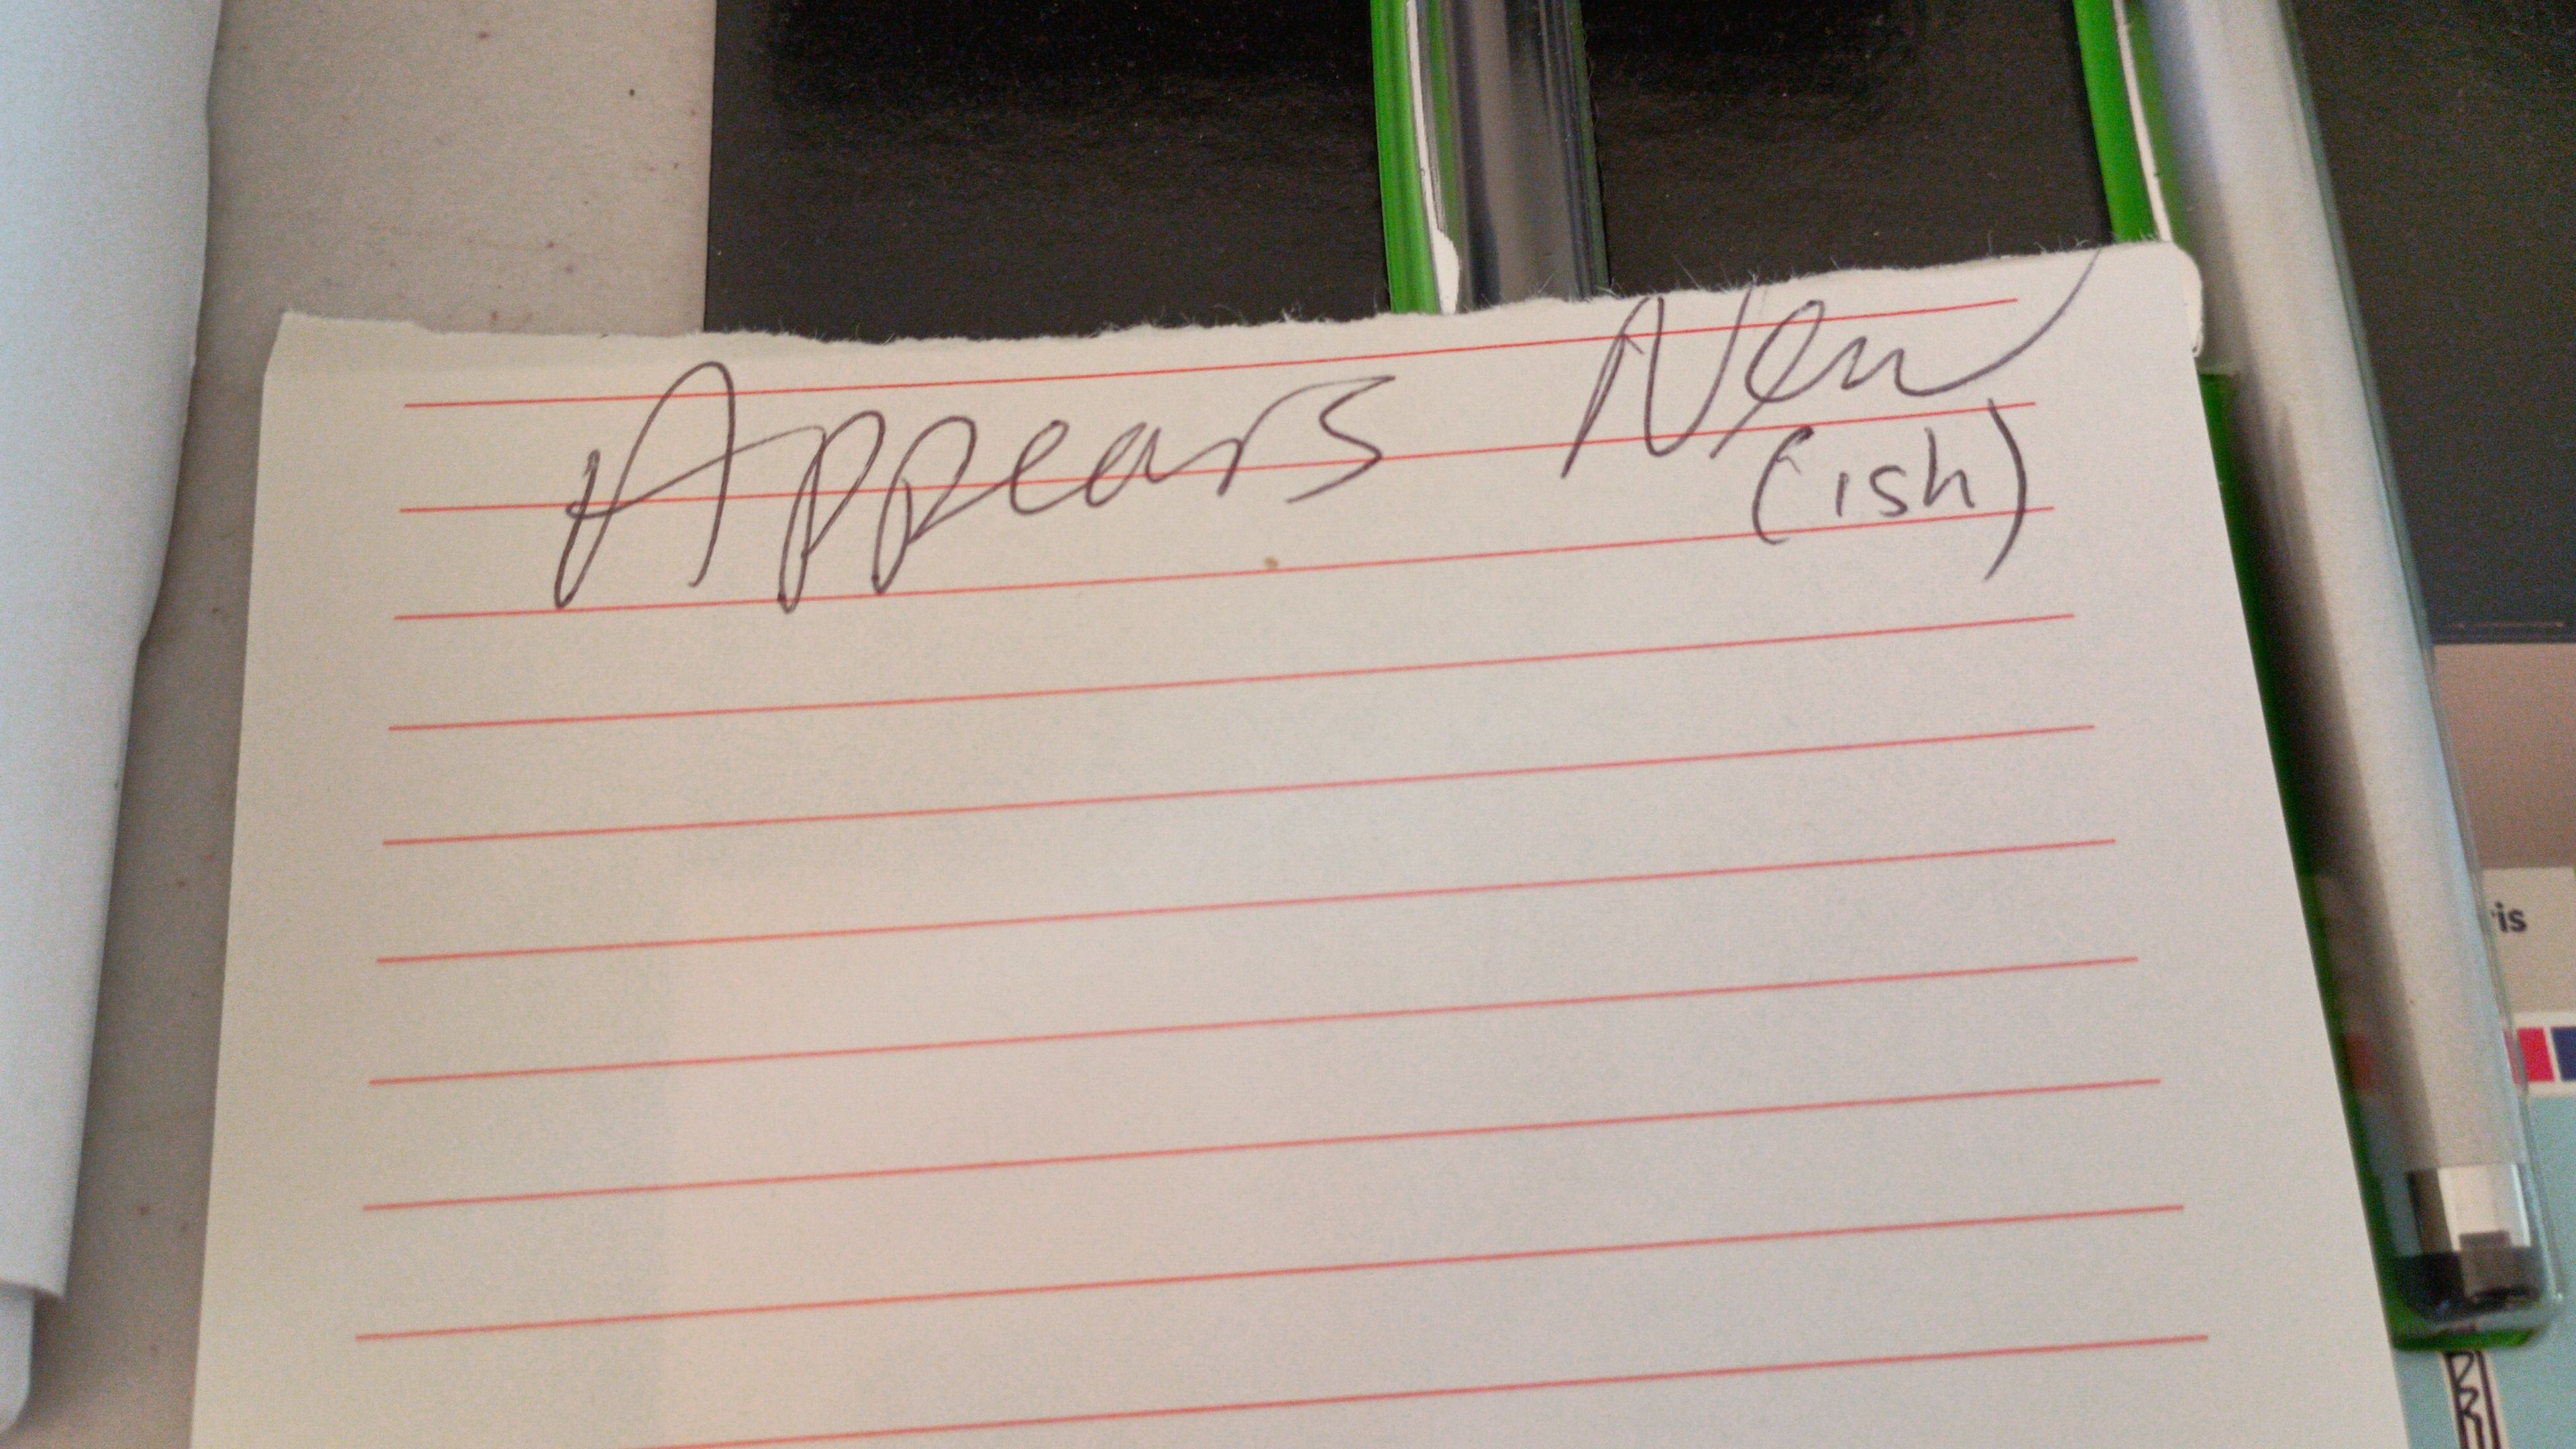 Appears New
(ish)